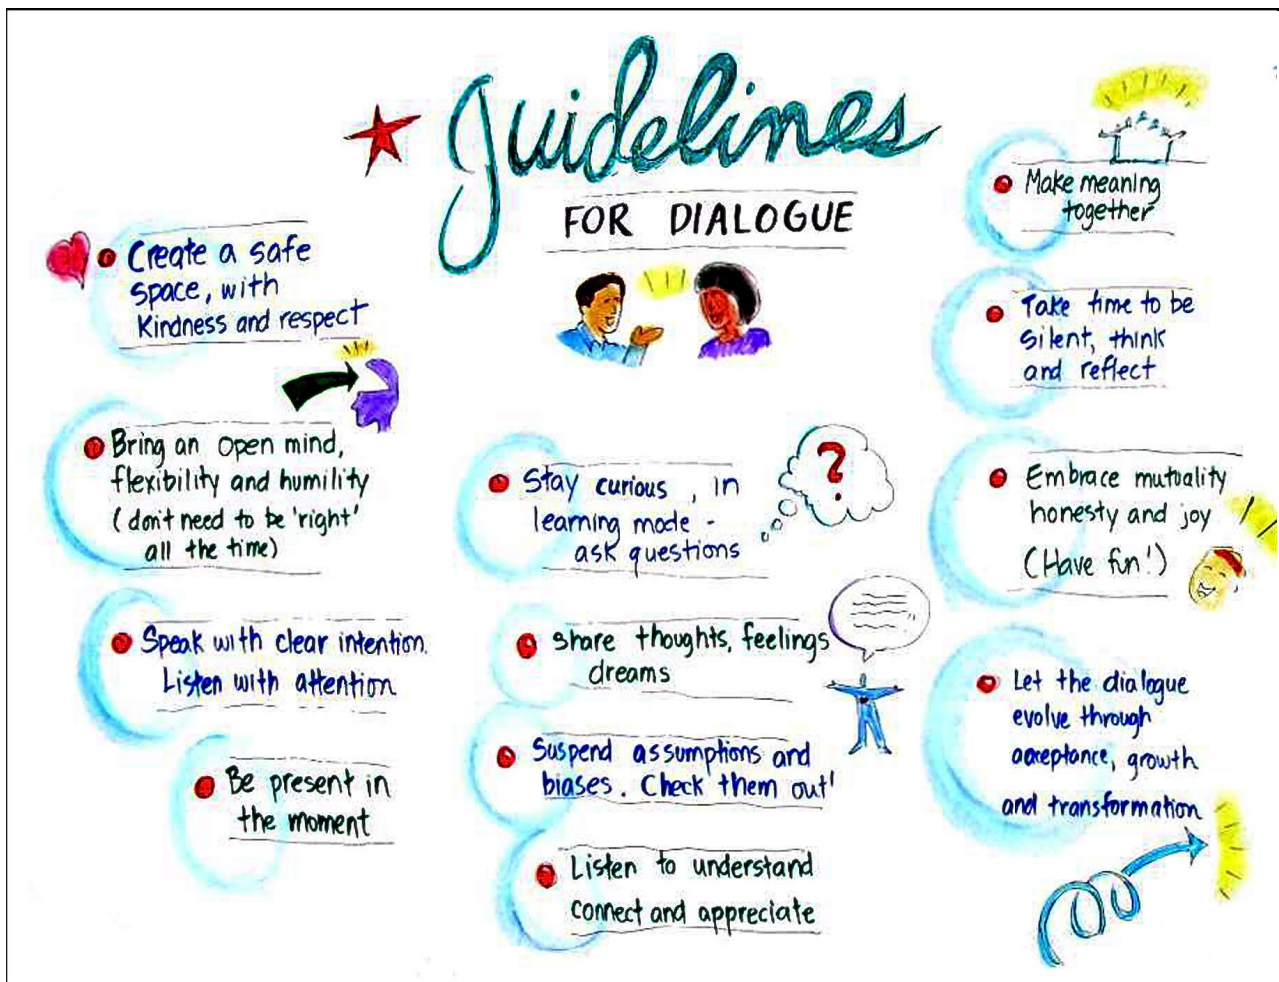 Guidelines
FOR DIALOGUE
Create a safe
space, with
Kindness and respect
Bring an open mind,
flexibility and humility
(don't need to be 'right'
all the time)
Speak with clear intention.
Listen with attention
Be present in
the moment
Stay curious, in
learning mode -
ask questions
?
Share thoughts, feelings
dreams
Suspend assumptions and
biases. Check them out!
Listen to understand
connect and appreciate
Make meaning
together
Take time to be
silent, think
and reflect
Embrace mutuality
honesty and joy
(Have fun!)
Let the dialogue
evolve through
acceptance, growth
and transformation